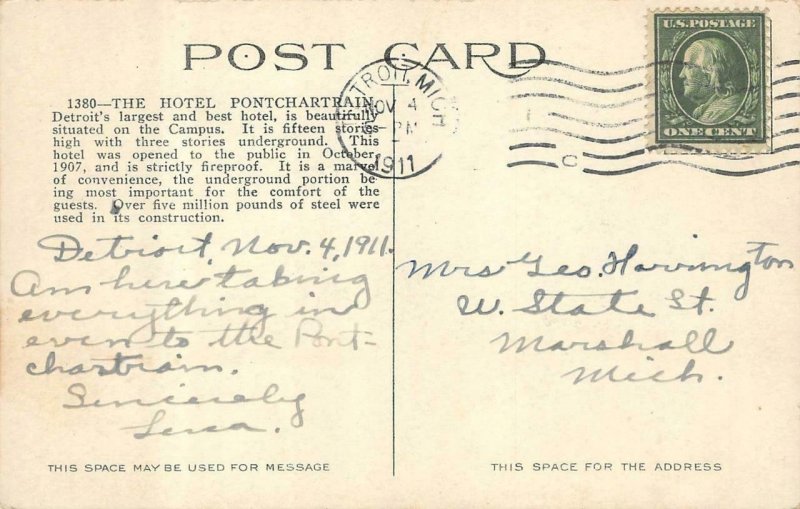 POST CARD
DETROIT, MICH
NOV 4
PM
1911
C
U.S. POSTAGE
ONE CENT
1380—THE HOTEL PONTCHARTRAIN,
Detroit's largest and best hotel, is beautifully
situated on the Campus. It is fifteen stories
high with three stories underground. This
hotel was opened to the public in October,
1907, and is strictly fireproof. It is a marvel
of convenience, the underground portion be-
ing most important for the comfort of the
guests. Over five million pounds of steel were
used in its construction.
Detroit, Nov. 4, 1911.
Am here taking
everything in
even to the Pont-
chartrain.
Sincerely
Mrs Geo. Harrington
W. State St.
Marshall
Mich.
THIS SPACE MAY BE USED FOR MESSAGE
THIS SPACE FOR THE ADDRESS